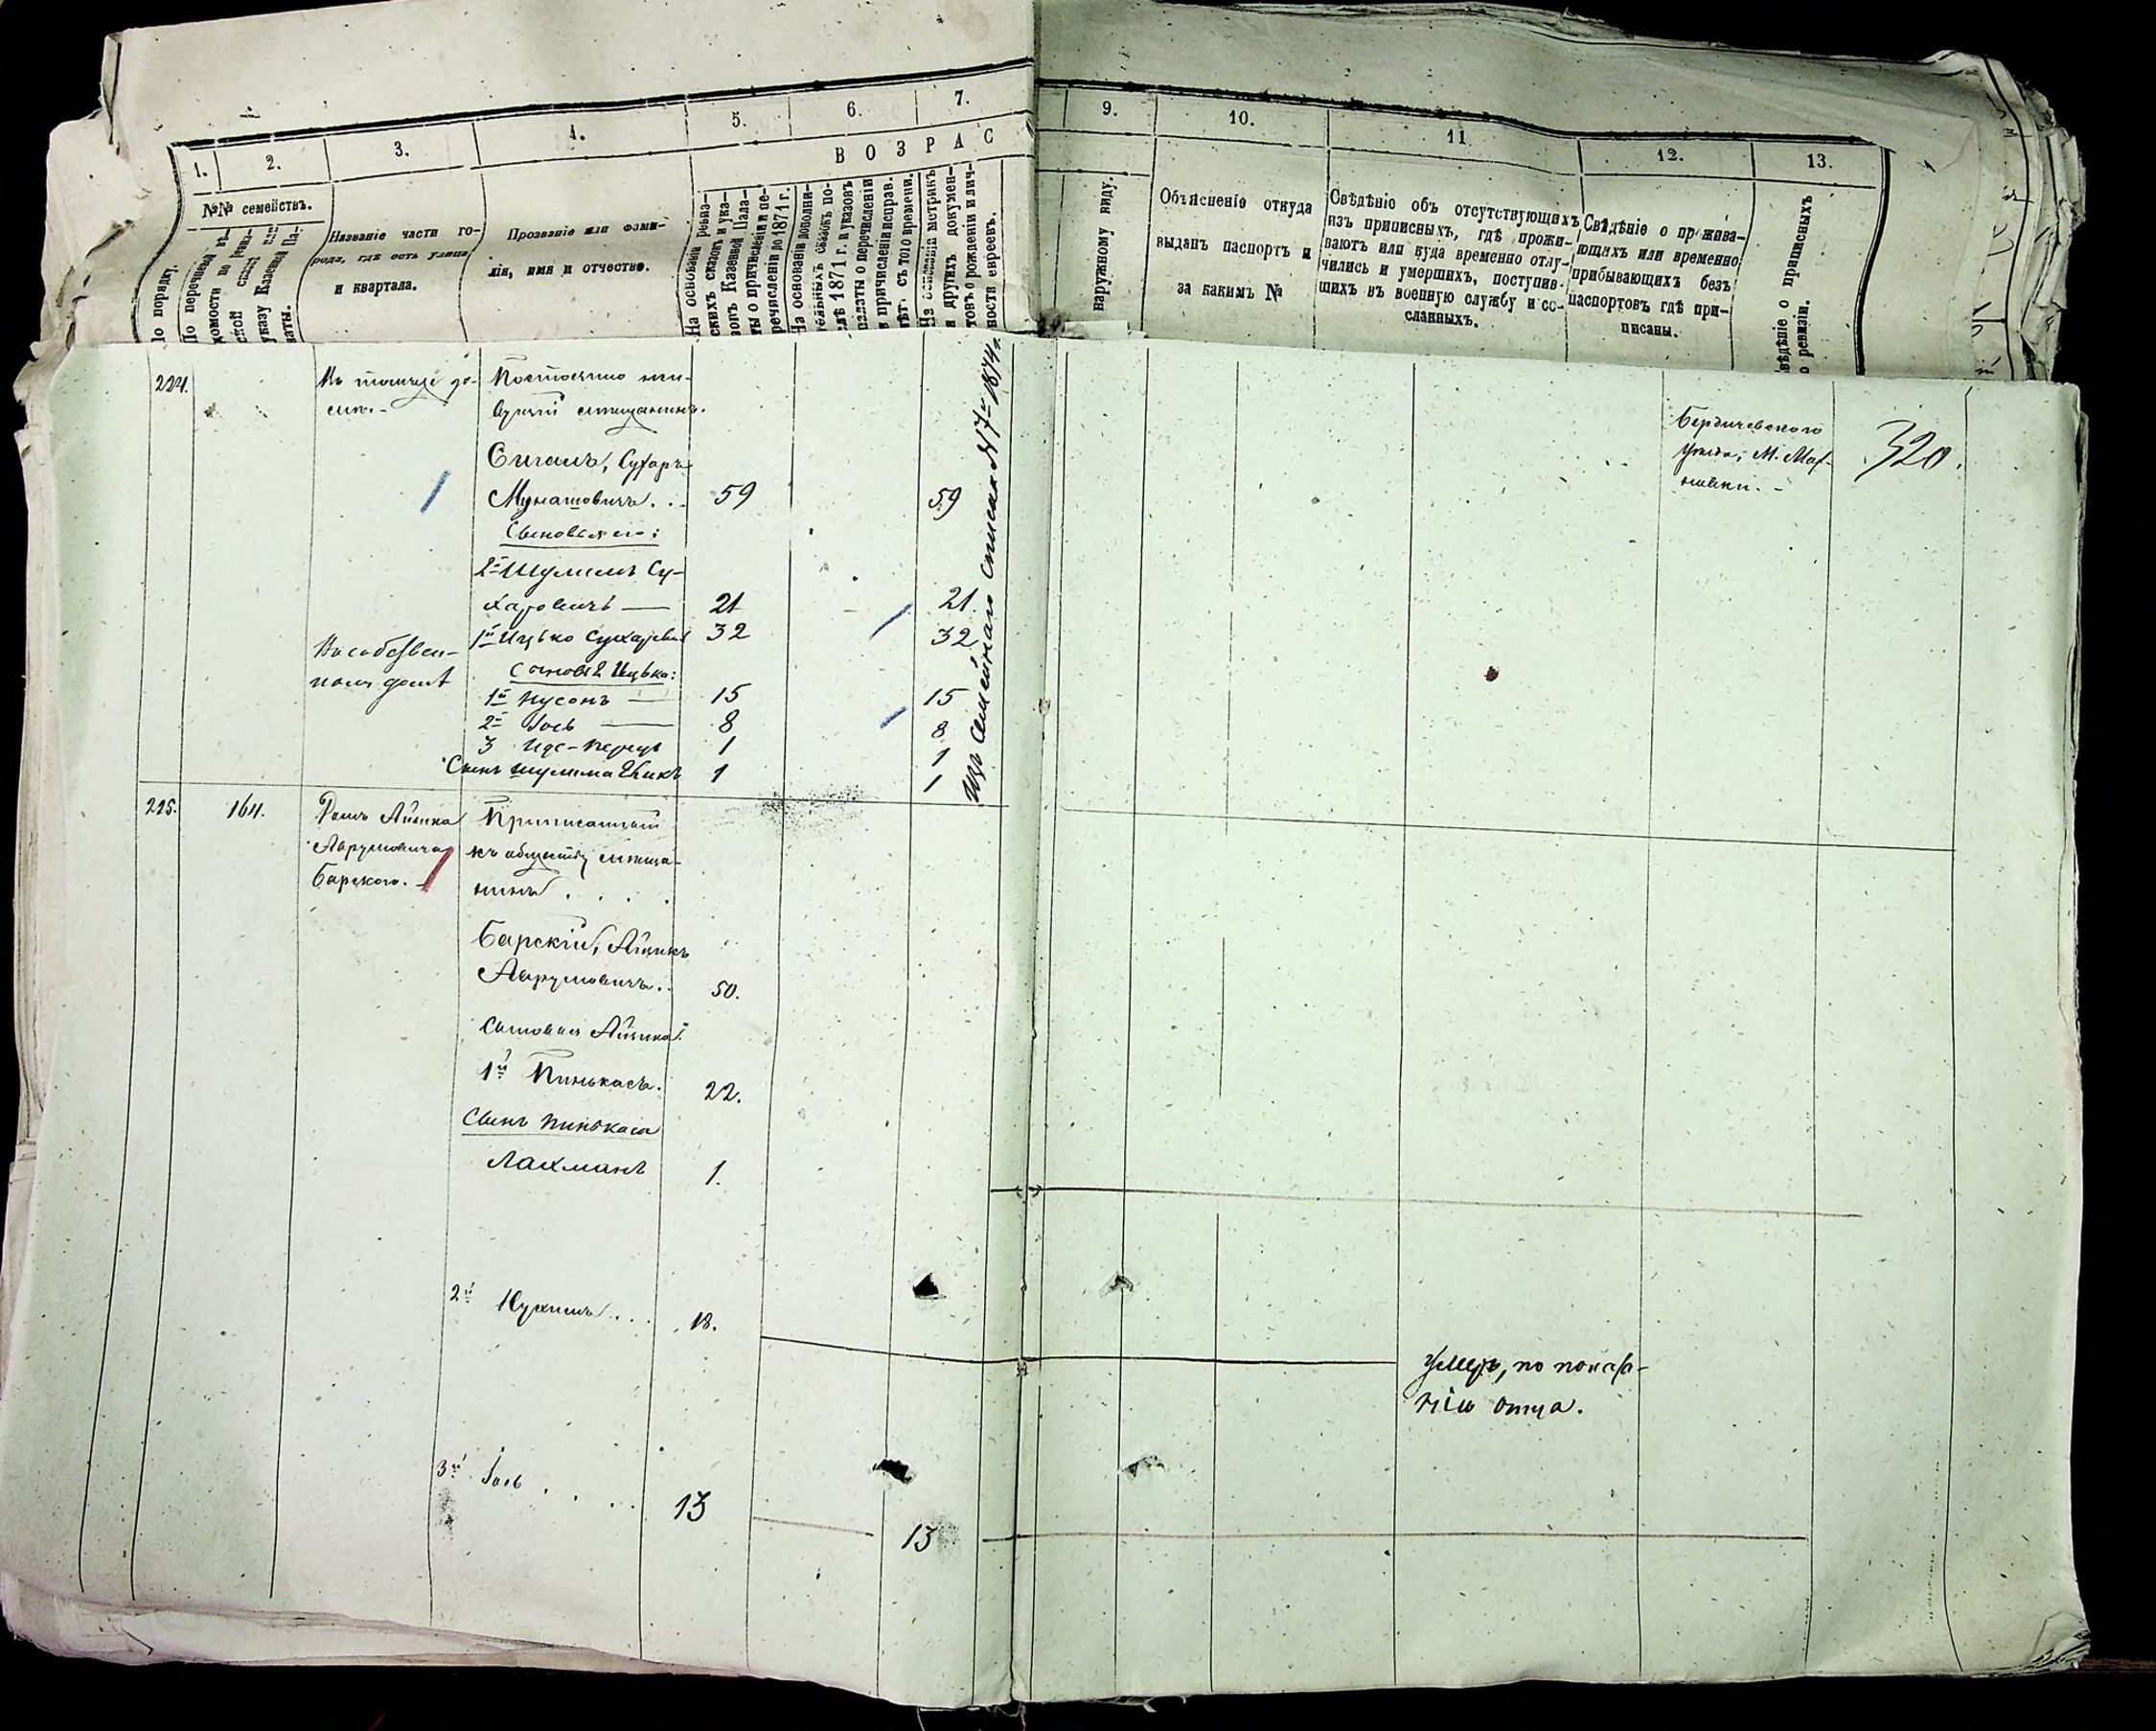 1.
2.
3.
4.
5.
6.
7.
9.
10.
11
12.
13.
В О З Р А С
№№ семействъ.
По порядку.
Названіе части го-
рода, гдѣ есть улица
и квартала.
Прозваніе или фами-
лія, имя и отчество.
На основаніи ревиз-
скихъ сказокъ и ука-
зовъ Казенной Пала-
ты о причисленіи и пе-
речисленіи до 1871 г.
На основаніи дополни-
тельныхъ сказокъ по-
слѣ 1871 г. и указовъ
палаты о перечисленіи
и причисленіи исправ.
лѣт. съ того времени.
На основаніи метрикъ
и другихъ докумен-
товъ о рожденіи и лич-
ности евреевъ.
наружному виду.
Объясненіе откуда
выданъ паспортъ и
за какимъ №
Свѣдѣніе объ отсутствующихъ
изъ приписныхъ, гдѣ прожи-
ваютъ или куда временно отлу-
чились и умершихъ, поступив-
шихъ въ военную службу и со-
сланныхъ.
Свѣдѣніе о прожива-
ющихъ или временно
прибывающихъ безъ
паспортовъ гдѣ при-
писаны.
свѣдѣніе о приписныхъ
по ревизіи.
224.
Постоянно жи-
вущій мѣщанинъ.
Сигалъ, Сухаръ
Мунашовичъ . . 59 59
Сыновья его:
2й Шулимъ Су-
харовичъ — 21 21.
1й Ицько 32 32
На собствен-
номъ домѣ
Сыновья Ицька:
1й Нусонъ — 15 15
2й Іось — 8 8
3 1 1
Сынъ Шулима 1 1
Изъ семейнаго списка № 7й 1874 г.
Бердичевскаго
уѣзда, М. Мах-
новки. -
320.
225.
164.
Домъ Айзика
Аврумовича
Барскаго. -
Приписанный
къ обществу мѣща-
нинъ . . . .
Барскій, Айзикъ
Аврумовичъ. . 50.
Сыновья Айзика:
1й Пинькасъ. 22.
Сынъ Пинькаса
Лахманъ 1.
2й Нухимъ . . . 18.
Умеръ, по показа-
нію отца.
3й Іось . . . . 13
13